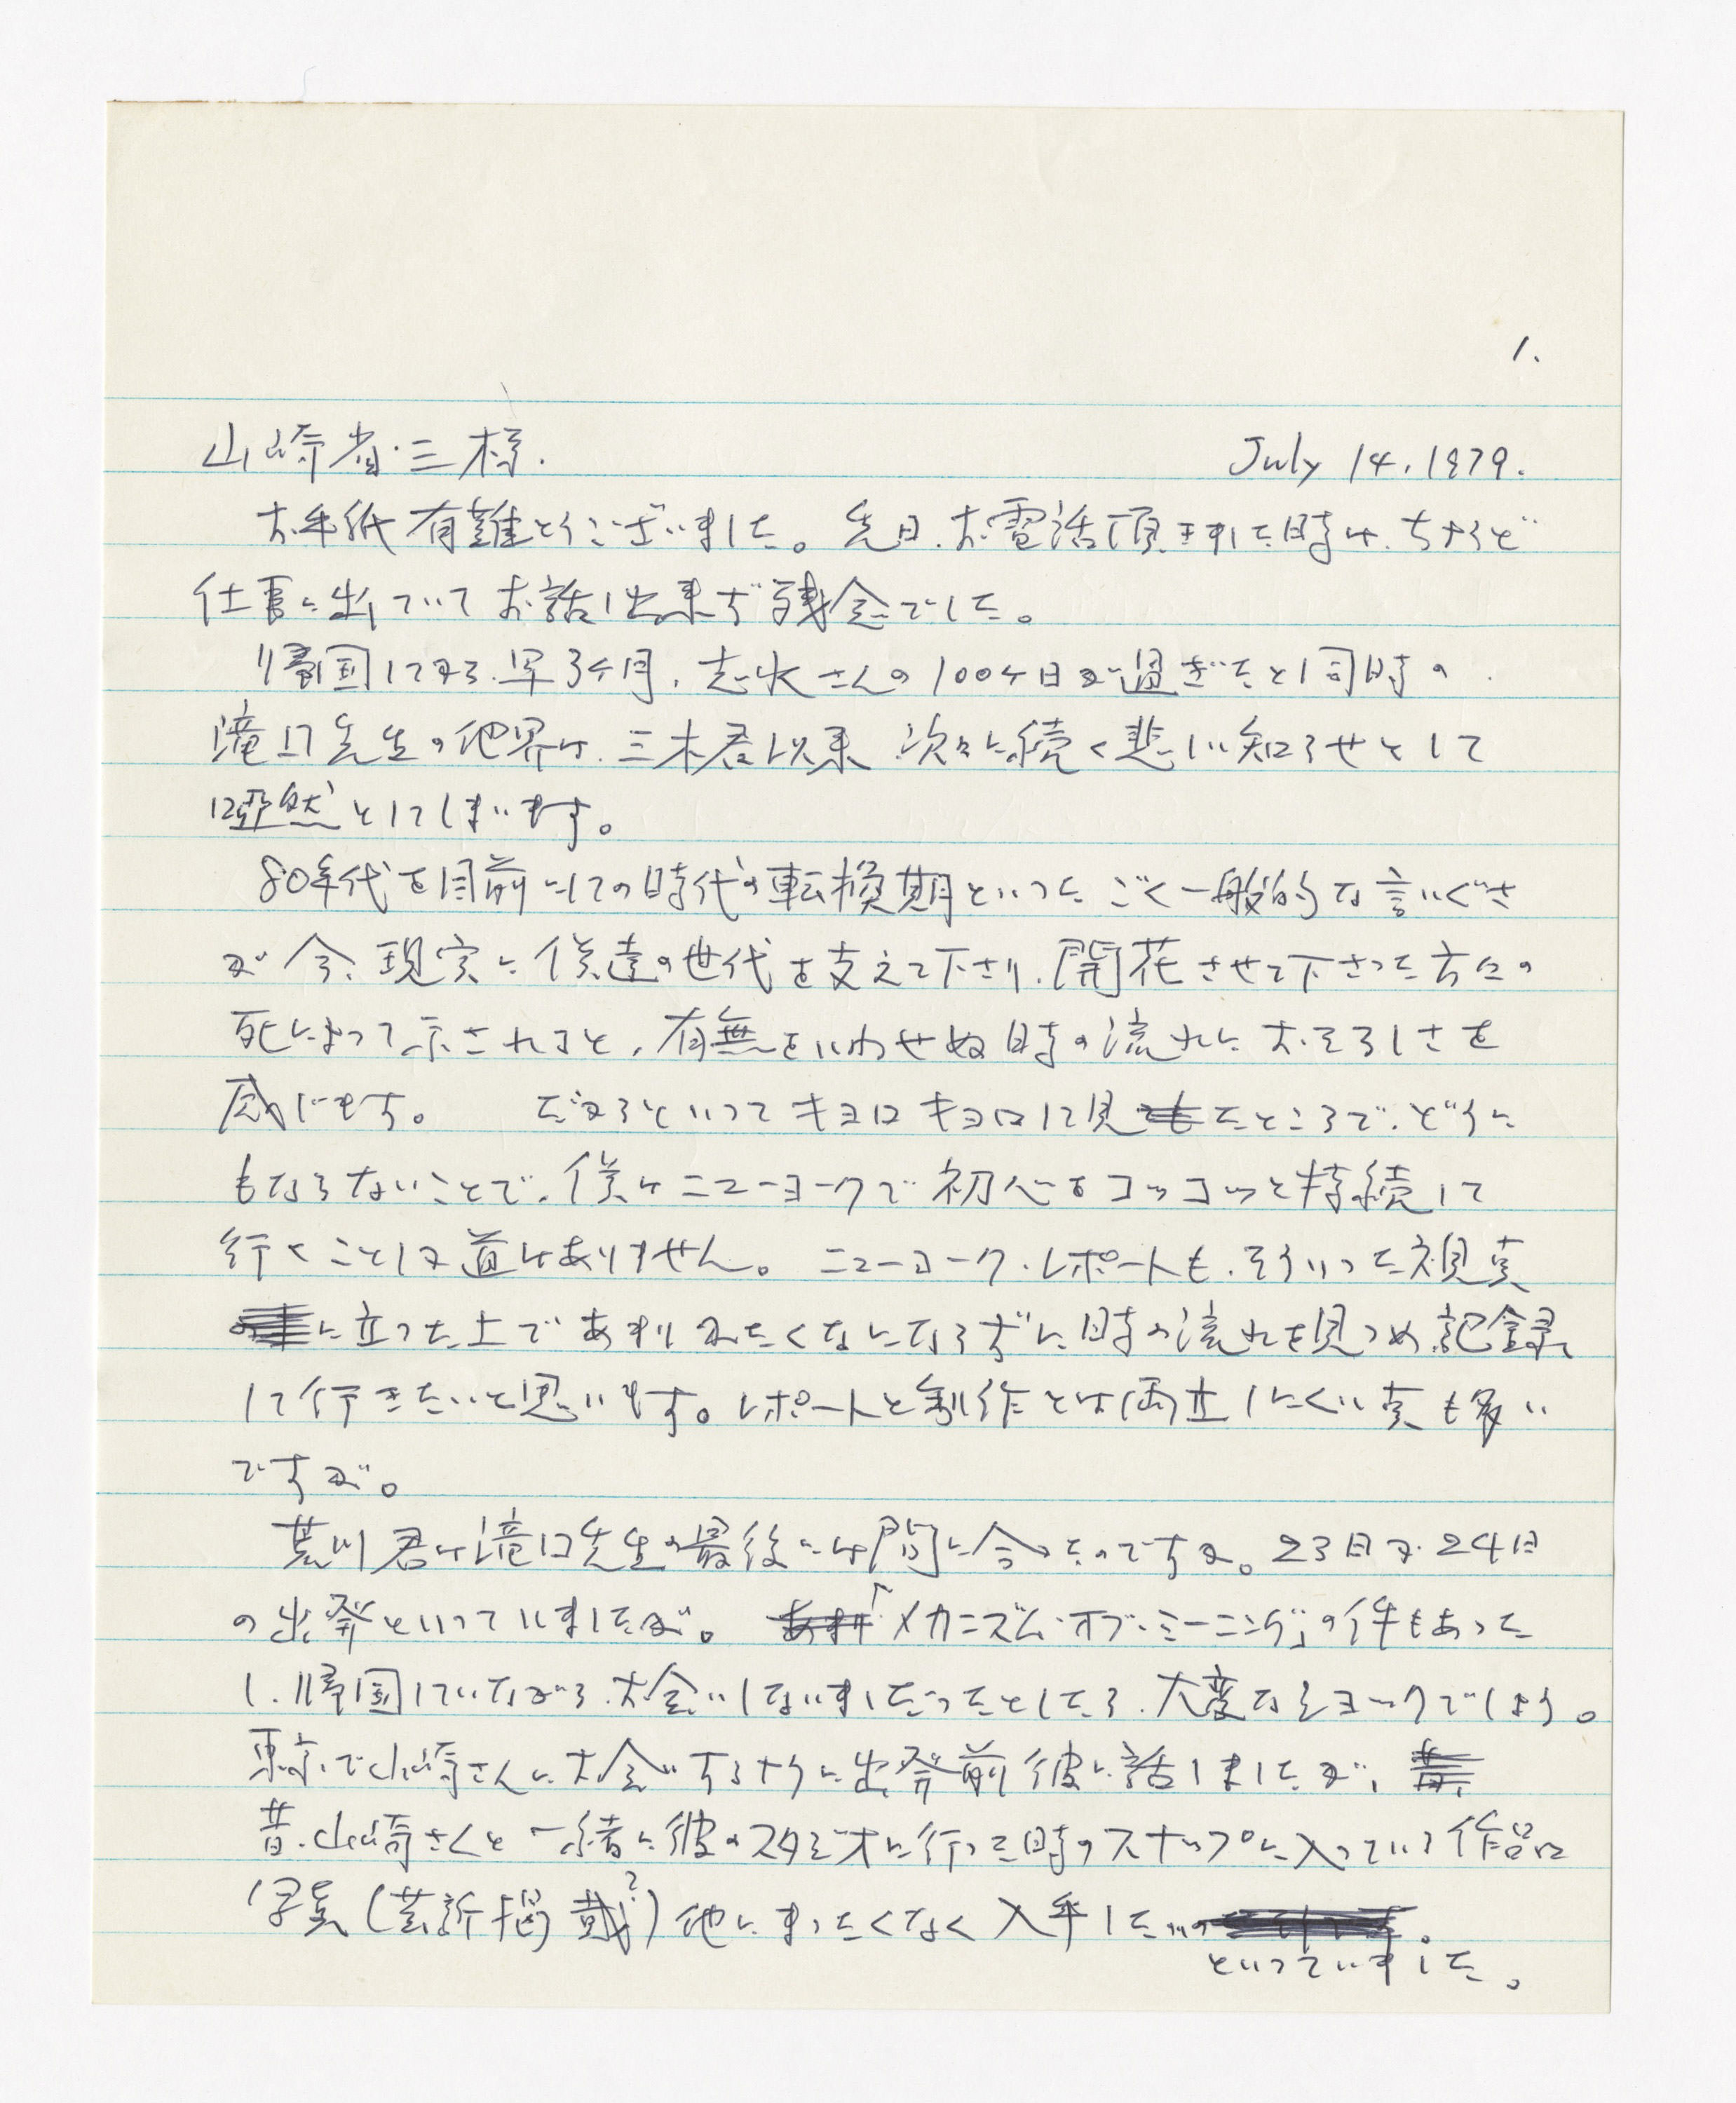 1.
山崎省三様.
July 14, 1979.
お手紙有難とうございました。先日、お電話頂きました時は、ちょうど
仕事に出ていてお話し出来ず残念でした。
帰国してから、早3ヶ月、志水さんの100ヶ日が過ぎたと同時の
瀧口先生の他界は、三木君以来、次々に続く悲しい知らせとして
啞然としてしまいます。
80年代を目前にしての時代の転換期といった、ごく一般的な言いぐさ
が今、現実に僕達の世代を支えて下さり、開花させて下さった方々の
死によって示されると、有無をいわせぬ時の流れに、おそろしさを
感じます。 だからといってキョロキョロして見たところで、どうに
もならないことで、僕はニューヨークで初心をコツコツと持続して
行くことしか道はありません。 ニューヨーク・レポートも、そういった視点
に立った上であまりかたくなにならずに時の流れを見つめ、記録
して行きたいと思います。レポートと制作とは両立しにくい点も多い
ですが。
荒川君は瀧口先生の最後には間に合ったのですか。23日か24日
の出発といっていましたが。 「メカニズム・オブ・ミーニング」の件もあった
し、帰国していながら、お会いしないまゝだったとしたら、大変なショックでしょう。
東京で山崎さんにお会いするように出発前彼に話しましたが、
昔、山崎さんと一緒に彼のスタジオに行った時のスナップに入っている作品の
写真(芸新掲載?)他にまったくなく入手したい
といっていました。